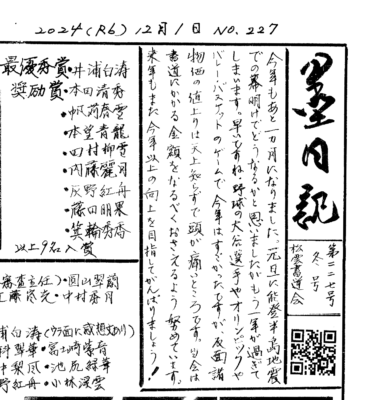 2024(R6) 12月1日 NO.227
墨月記
第二二七号
冬号
松雲書道会
今年もあと一カ月になりました。元旦に能登半島地震
での幕明けでどうなるかと思いましたがもう一年が過ぎて
しまいます。早いですね。野球の大谷選手やオリンピックや
バレーバスケットのゲームで今年はすごかったですが、反面諸
物価の値上りは天上知らずで頭が痛いところです。当会は
書道にかかる金額をなるべくおさえるよう努めています。
来年もまた今年以上の向上を目指してがんばりましょう!
最優秀賞・井浦白涛
奨励賞・本田清秀
・帆苅春雪
・本望青龍
・田村柳雪
・内藤麗月
・灰野紅舟
・藤田明果
・箕輪秀香
以上9名入賞
審査主任)・圓山翠韻
工藤 光・中村香月
浦白涛(ウラ面に感想文あり)
科翠華・富士崎紫音
中梨風・池尻緑華
野紅舟・小林深雪